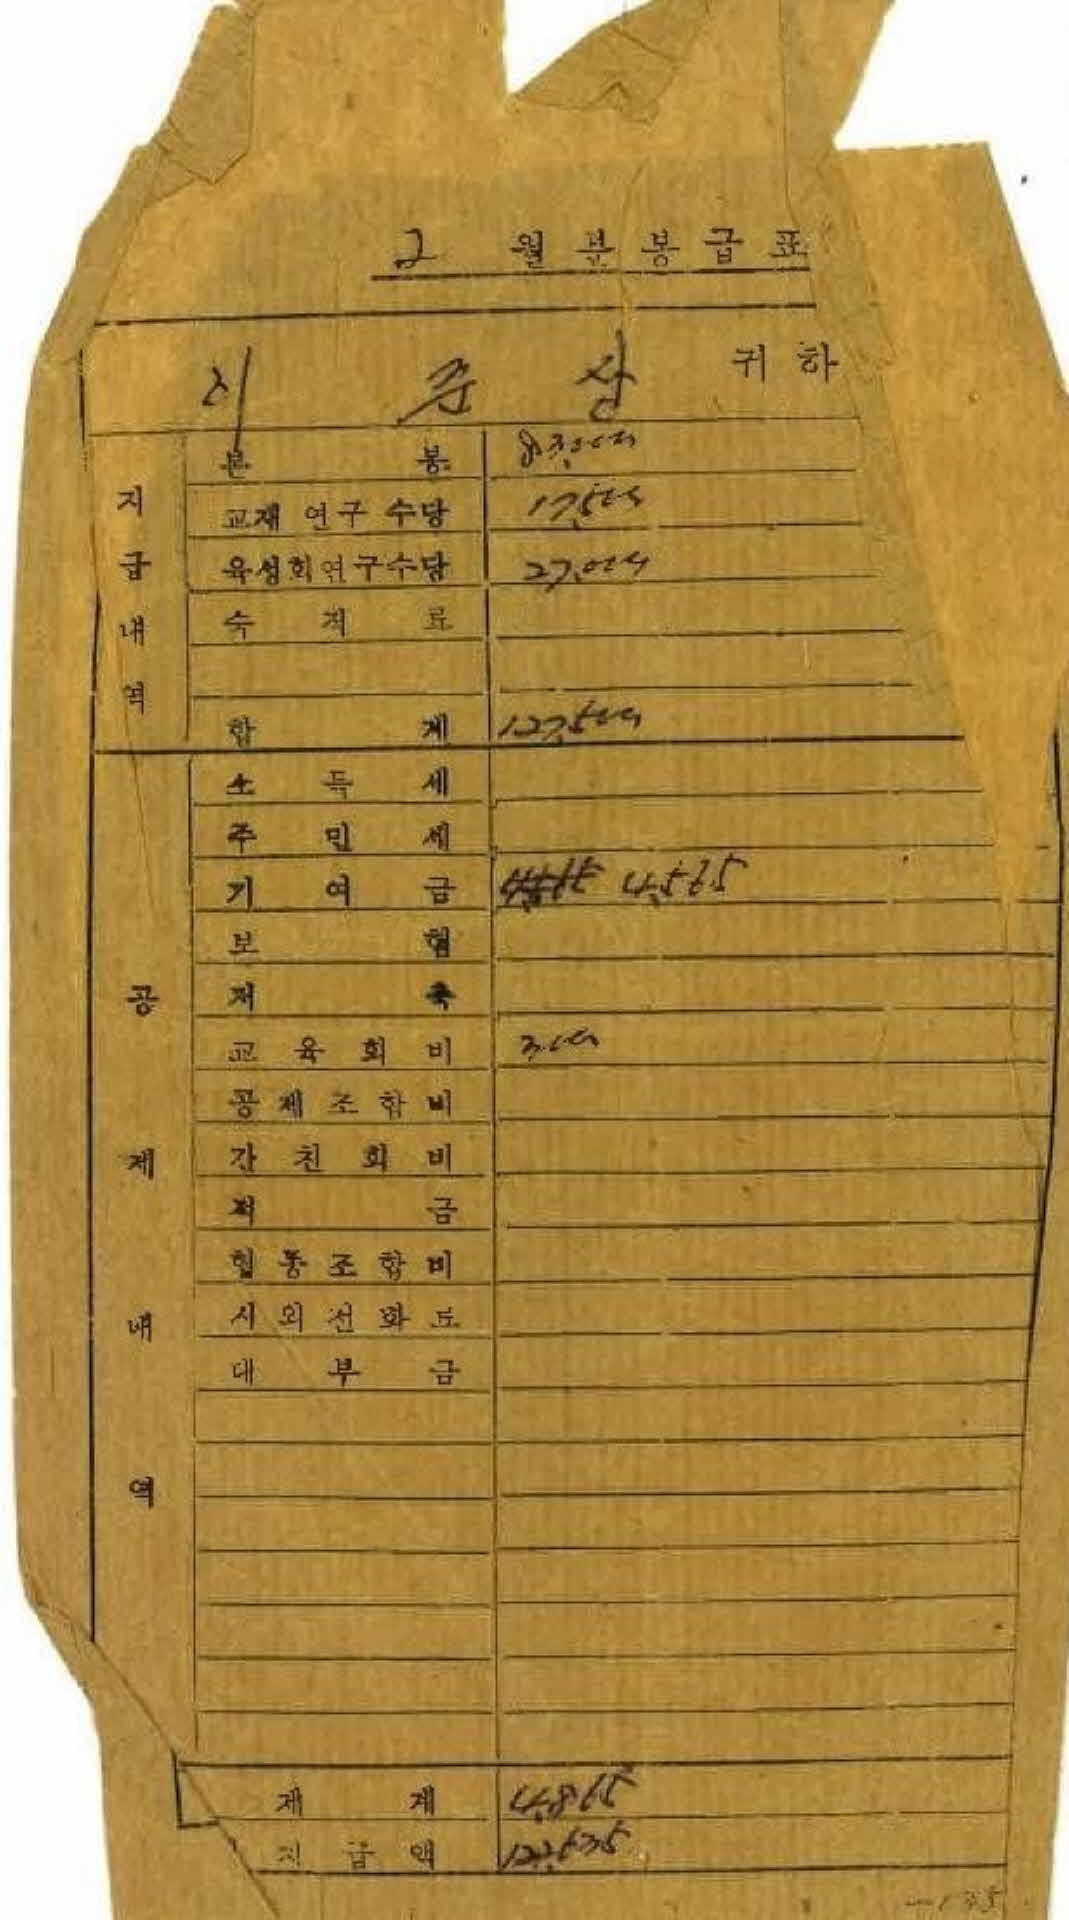 2 월 분 봉 급 표
이 준 상 귀 하
지 급 내 역
본 봉 83,000
교재 연구 수당 17,500
육성회연구수당 27,000
숙 직 료
합 계 127,500
공 제 내 역
소 득 세
주 민 세
기 여 금 4,565
보 험
저 축
교 육 회 비 300
공 제 조 합 비
간 친 회 비
적 금
협 동 조 합 비
시 외 전 화 료
대 부 금
재 계 4,865
지 급 액 122,635